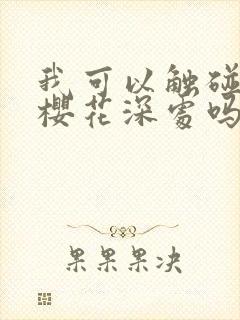 我可以触碰
樱花深处吗
果果果决